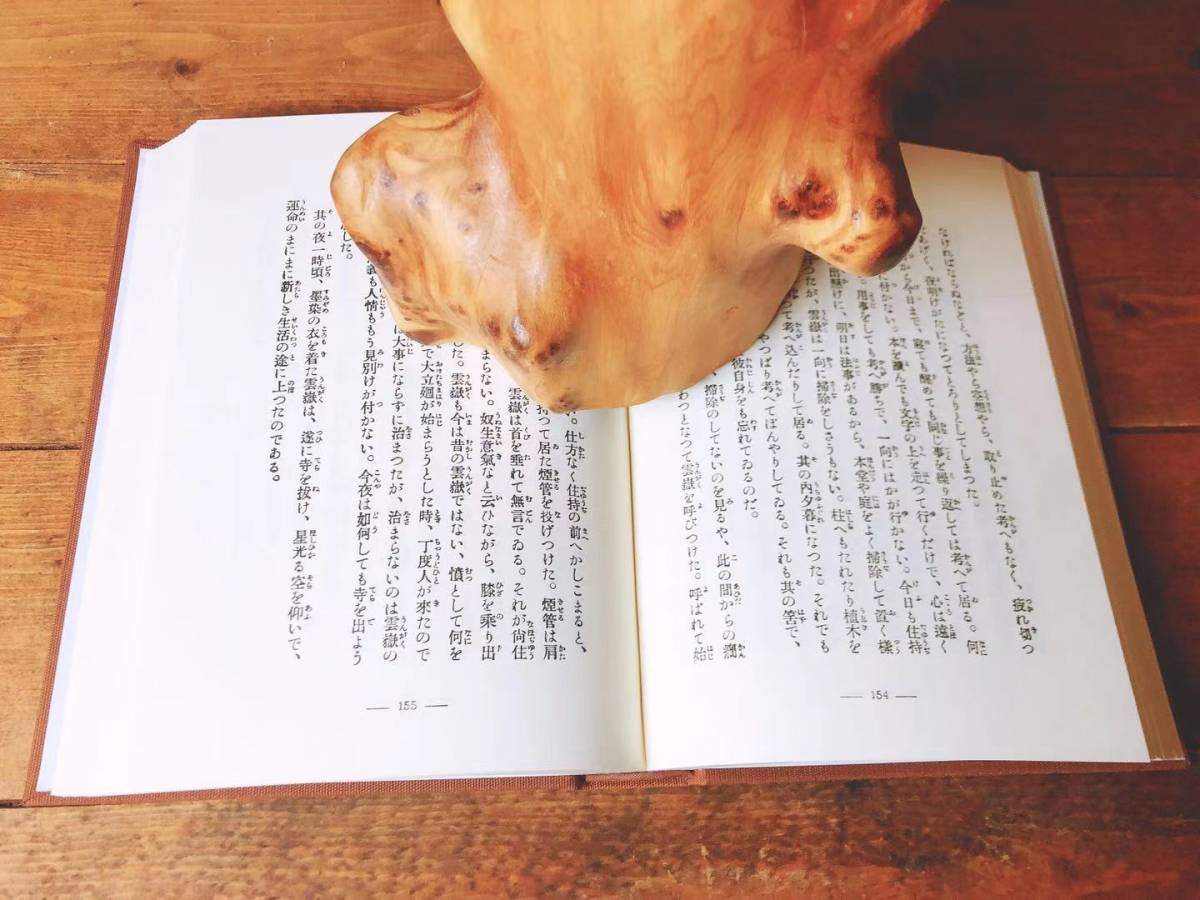 なければならぬなどと、方法やら空想やら、取り止めた考へもなく、疲れ切つ
てあげく、夜明けがたになつてとろりとしてしまつた。
から今日まで、寝ても醒めても同じ事を繰り返しては考へて居る。何
に付かない。本を讀んでも文字の上を走つて行くだけで、心は遠く
。用事をしても考へ勝ちで、一向にはかが行かない。今日も住持
出懸けに、明日は法事があるから、本堂や庭をよく掃除して置く樣
つたが、雲嶽は一向に掃除をしさうもない。柱へもたれたり植木を
て考へ込んだりして居る。其の内夕暮になつた。それでも
やつぱり考へてぼんやりしてゐる。それも其の筈で、
彼自身をも忘れてゐるのだ。
掃除のしてないのを見るや、此の間からの癇
わつとなつて雲嶽を呼びつけた。呼ばれて始
― 154 ―
い。仕方なく住持の前へかしこまると、
持つて居た煙管を投げつけた。煙管は肩
雲嶽は首を垂れて無言でゐる。それが尚住
まらない。奴生意氣なと云ひながら、膝を乘り出
した。雲嶽も今は昔の雲嶽ではない、憤として何を
で大立廻が始まらうとした時、丁度人が來たので
は大事にならずに治まつたが、治まらないのは雲嶽の
も人情ももう見別けが付かない。今夜は如何しても寺を出よう
した。
其の夜一時頃、墨染の衣を着た雲嶽は、遂に寺を拔け、星光る空を仰いで、
運命のまにまに新しき生活の途に上つたのである。
― 155 ―